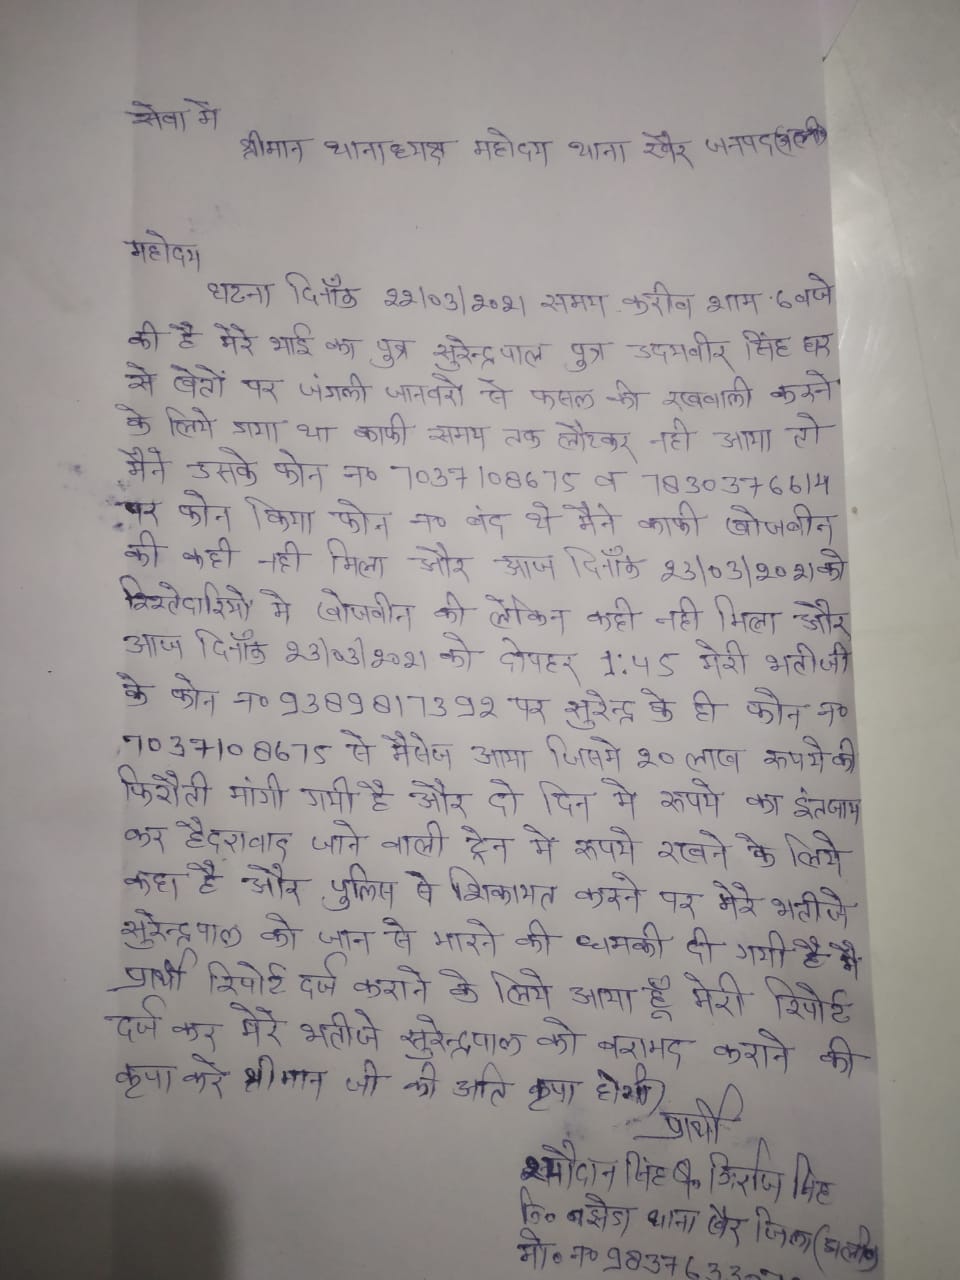 सेवा में
श्रीमान थानाध्यक्ष महोदय थाना खैर जनपद (अली०)
महोदय
घटना दिनाँक २२/०३/२०२१ समय करीब शाम 6 वजे
की है मेरे भाई का पुत्र सुरेन्द्रपाल पुत्र उदयवीर सिंह घर
से खेतों पर जंगली जानवरो से फसल की रखवाली करने
के लिये गया था काफी समय तक लौटकर नही आया तो
मैने उसके फोन न० 7037108675 व 7830376614
पर फोन किया फोन न० बंद थे मैने काफी खोजवीन
की कही नही मिला और आज दिनाँक २3/०3/२०२१ को
रिश्तेदारियो मे खोजवीन की लेकिन कही नही मिला और
आज दिनाँक २3/०3/२०२१ को दोपहर 1:45 मेरी भतीजी
के फोन न० 9389817392 पर सुरेन्द्र के ही फोन न०
7037108675 से मैसेज आया जिसमे २० लाख रूपये की
फिरौती मांगी गयी है और दो दिन मे रूपये का इंतजाम
कर हैदरावाद जाने वाली ट्रेन मे रूपये रखने के लिये
कहा है और पुलिस से शिकायत करने पर मेरे भतीजे
सुरेन्द्रपाल को जान से मारने की धमकी दी गयी है मै
प्रार्थी रिपोर्ट दर्ज कराने के लिये आया हूँ मेरी रिपोर्ट
दर्ज कर मेरे भतीजे सुरेन्द्रपाल को बरामद कराने की
कृपा करे श्रीमान जी की अति कृपा होगी
प्रार्थी
सिंह सिंह
नि० थाना खैर जिला (अली०)
मो० न० 9837633